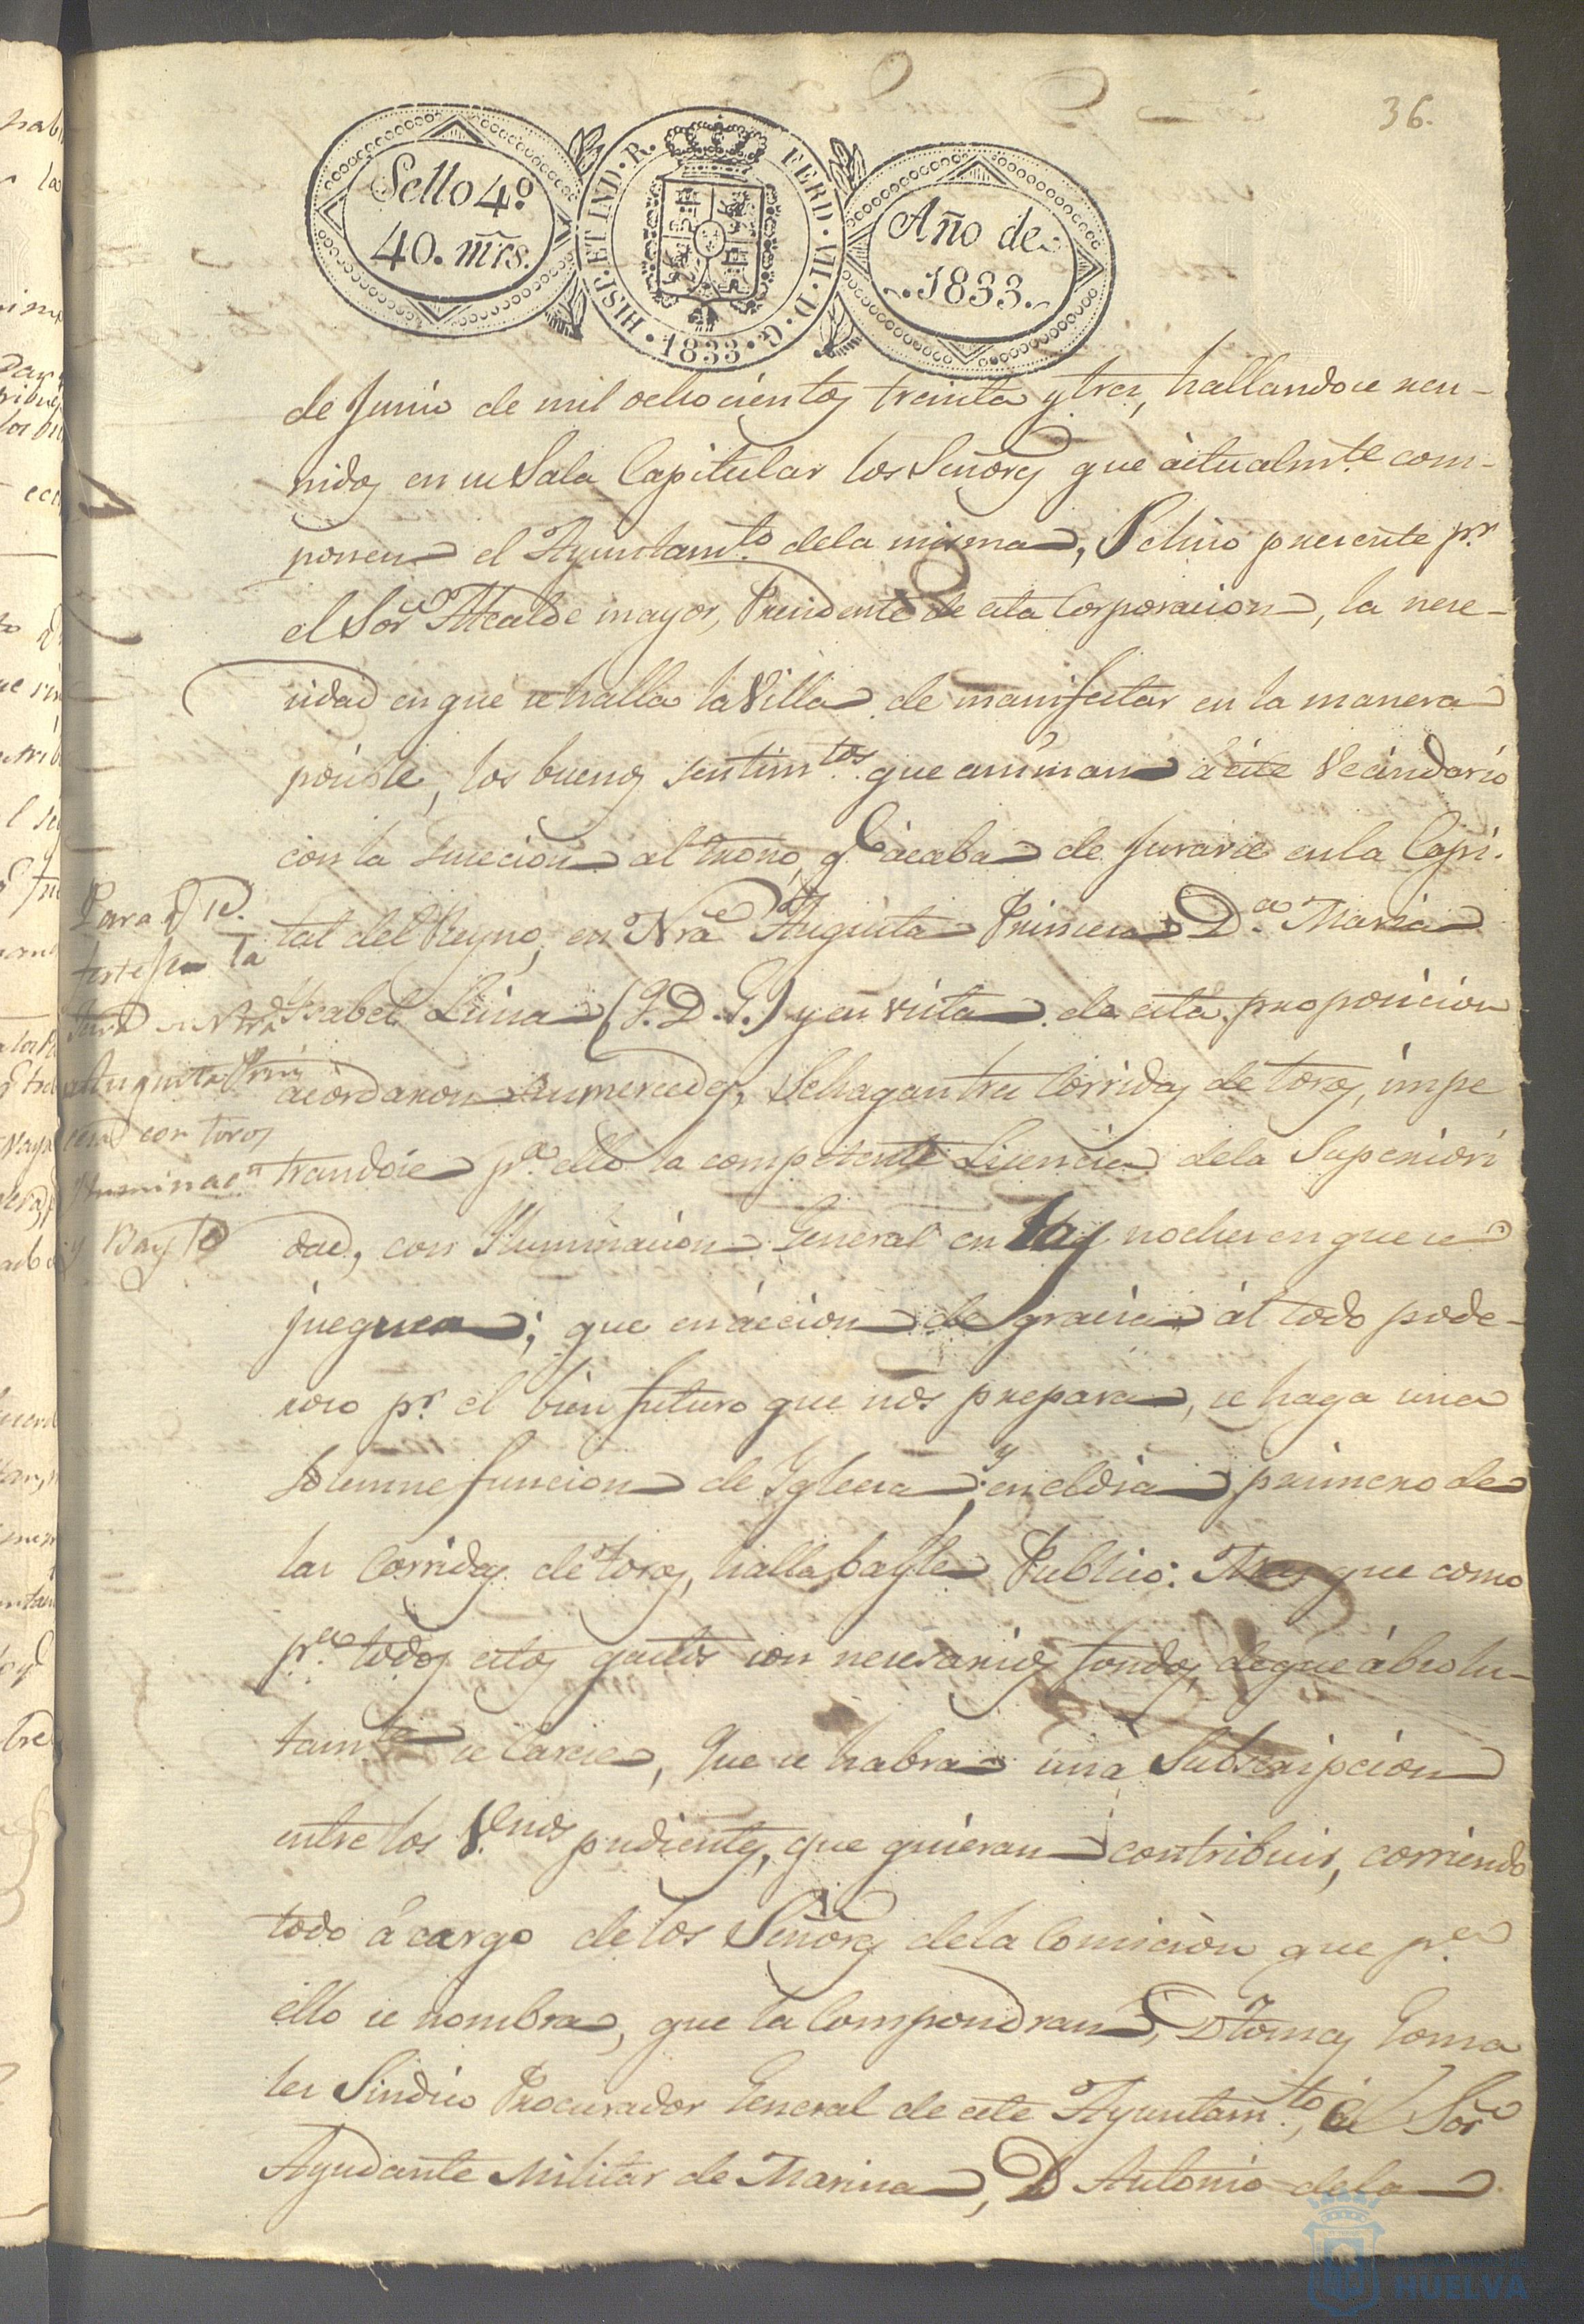 36.
Sello 4º
40. mrs.
HISP. ET IND. R. FERD. VII. D. G. 1833
Año de
1833.
de Junio de mil ochocientos treinta y tres, hallandose reu-
nidos en su Sala Capitular los Señores que actualmte com-
ponen el Ayuntamto dela misma, Se hiso presente pr
el Sor Alcalde mayor, Presidente de esta Corporacion, la nese-
sidad en que se halla la Villa de manifestar en la manera
posible, los buenos sentimtos que animan á este Vecindario
con la sucecion al trono, q acaba de Jurarse en la Capi-
tal del Reyno, en Nra Augusta Princesa Da Maria
Isabel Luisa (Q. D. G.) y en vista de esta proposicion
acordaron sus mercedes, Se hagan tres Corridas de toros, impe
trandose pa ello la competente Lisencia dela Superiori
dad, con Iluminacion General en las noches en que se
jueguen; que en accion de gracias al todo pode-
roso pr el bien futuro que nos prepara, se haga una
Solemne funcion de Iglesia, y en el dia primero de
las Corridas de toros, halla bayle Publico: Mas que como
pa todos estos gastos son nesesarios fondos, de que absolu-
tamte se Carese, Que se habra una Subscripcion
entre los Vnos pudientes, que quieran contribuir, corriendo
todo á cargo de los Señores dela Comicion que pa
ello se nombra, que la Compondran, D Tomas Gonsa
les Sindico Procurador General de este Ayuntamto, el Sor
Ayudante Militar de Marina, D Antonio dela
Para q se
festeje la
Jura a Ntra
Augusta Prin
cesa con toros
Yluminacn
y Bayle
HUELVA